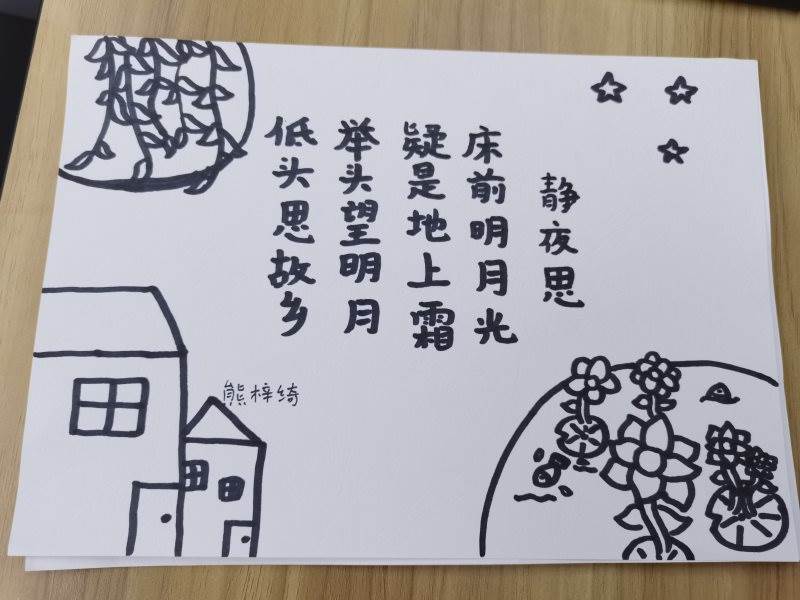 静夜思
床前明月光
疑是地上霜
举头望明月
低头思故乡
熊梓绮